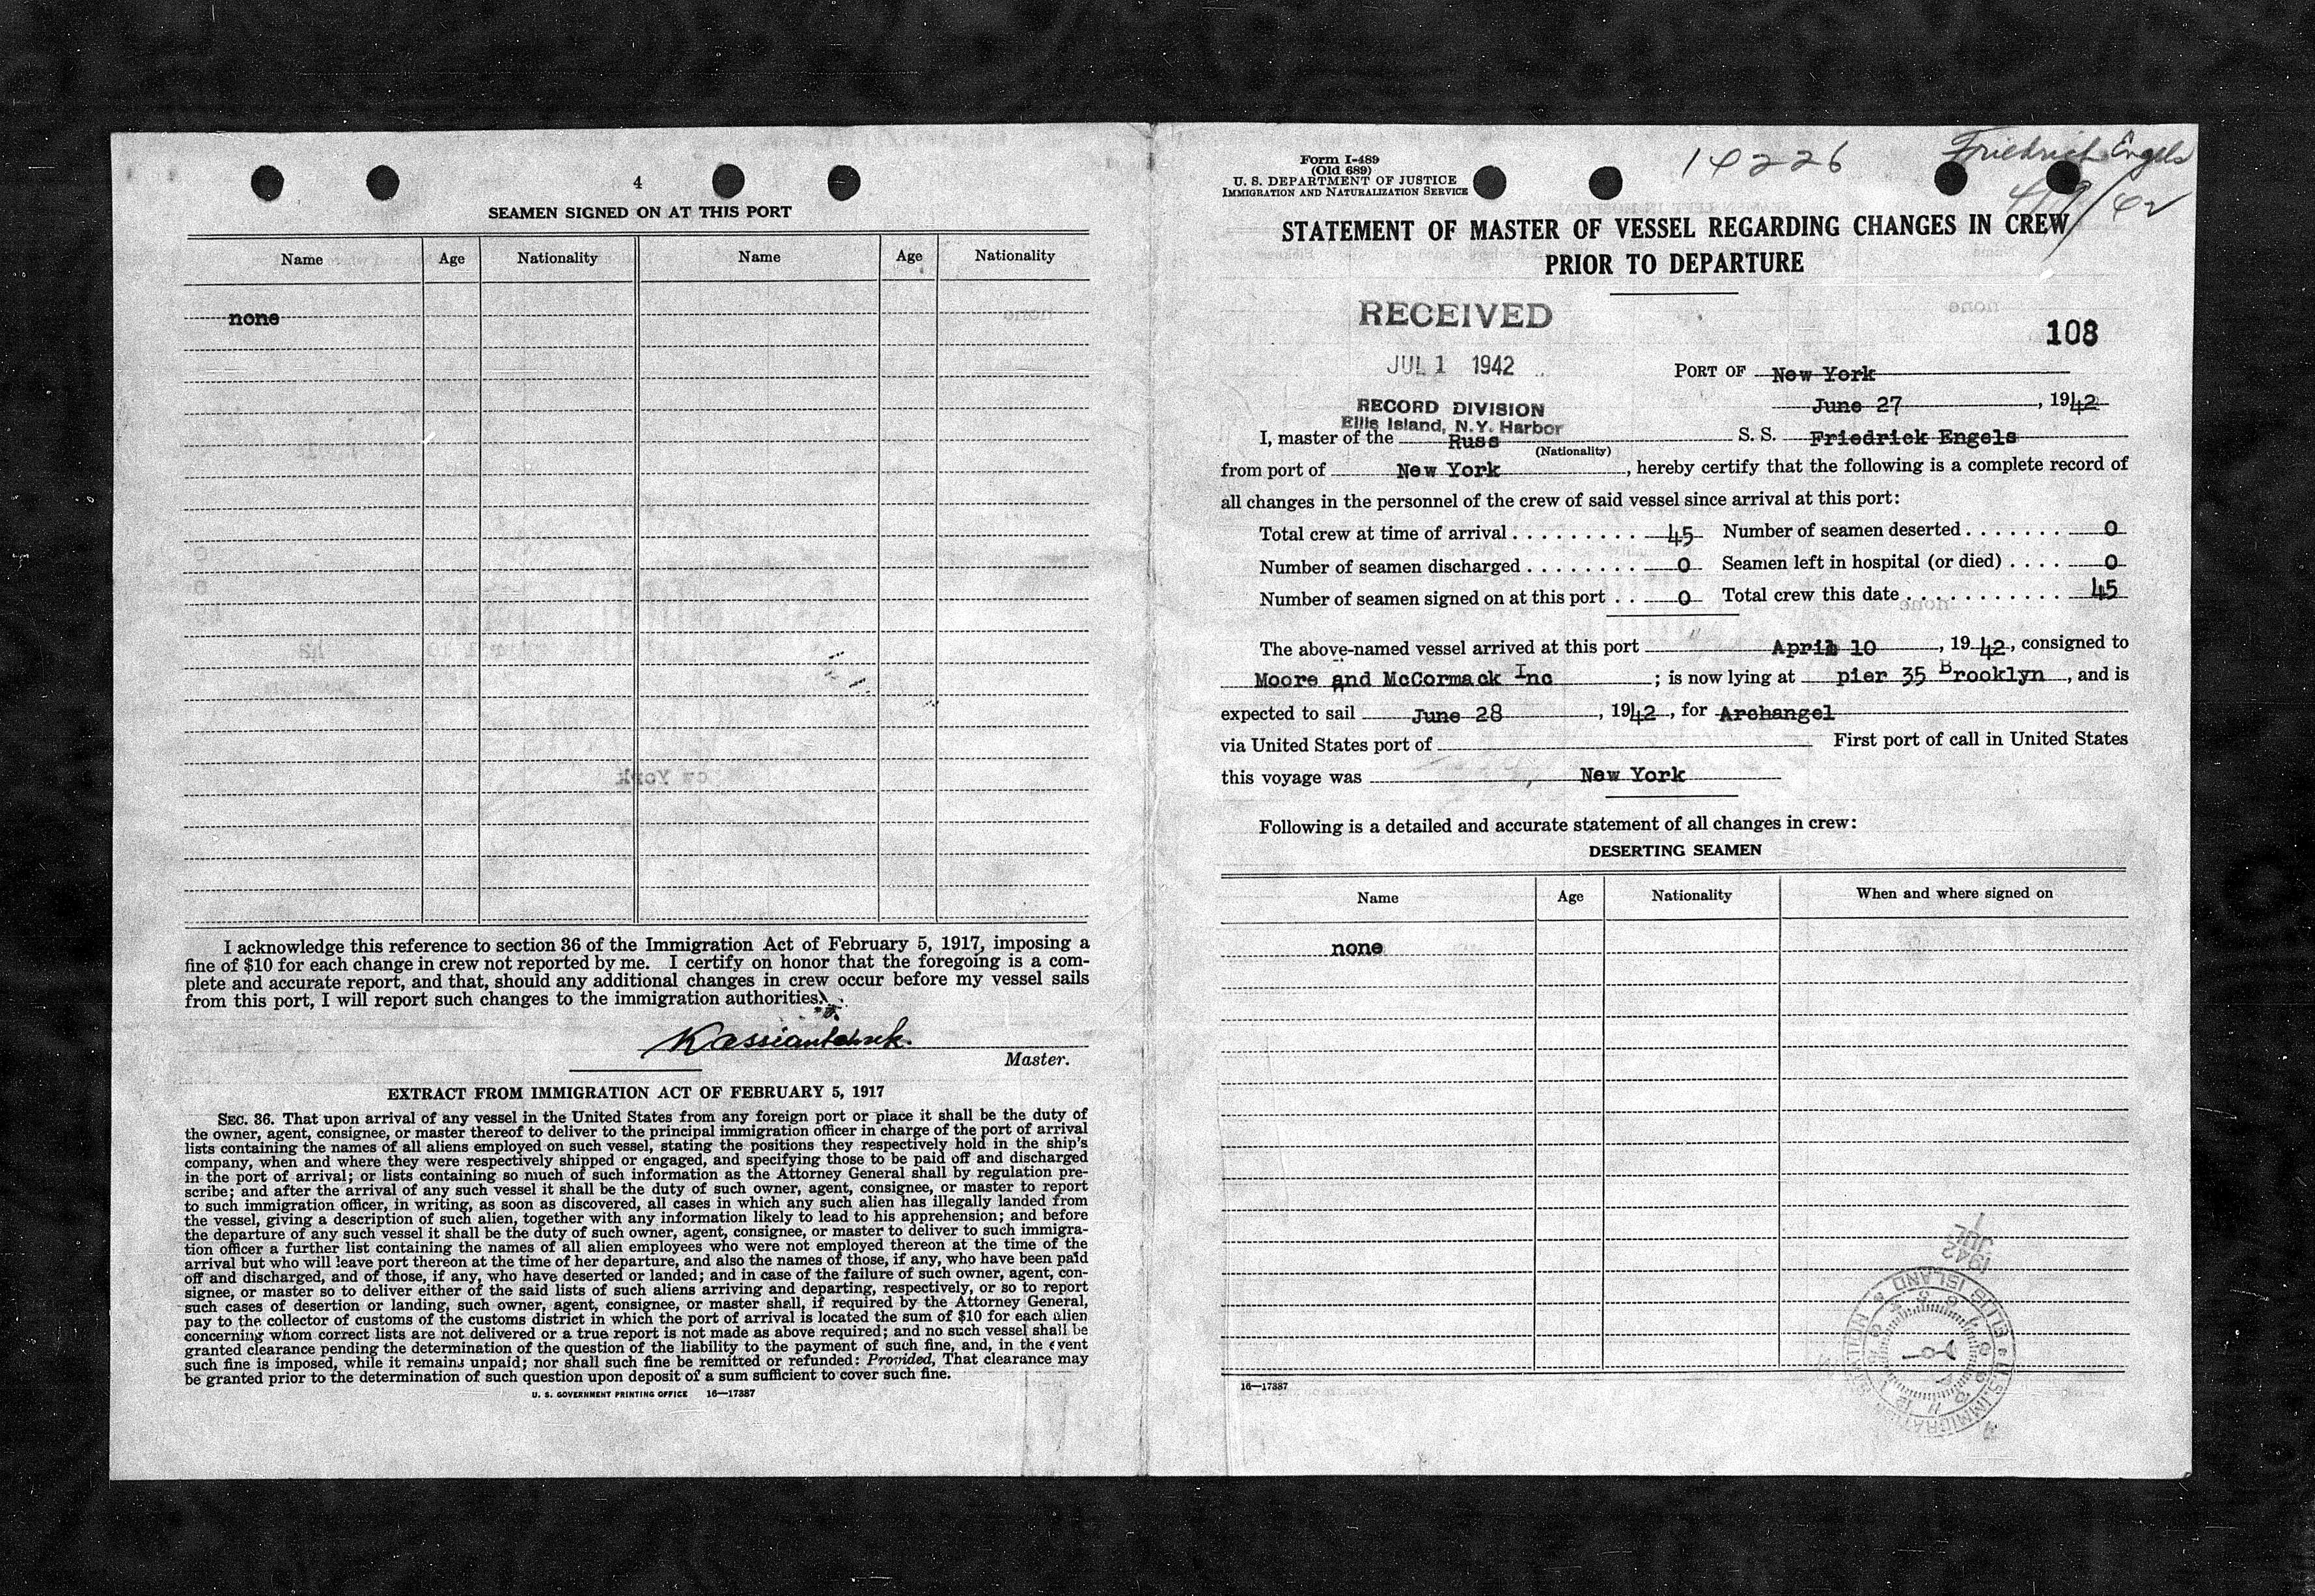 4
SEAMEN SIGNED ON AT THIS PORT
Name Age Nationality Name Age Nationality
none
I acknowledge this reference to section 36 of the Immigration Act of February 5, 1917, imposing a
fine of $10 for each change in crew not reported by me. I certify on honor that the foregoing is a com-
plete and accurate report, and that, should any additional changes in crew occur before my vessel sails
from this port, I will report such changes to the immigration authorities.
Master.
EXTRACT FROM IMMIGRATION ACT OF FEBRUARY 5, 1917
SEC. 36. That upon arrival of any vessel in the United States from any foreign port or place it shall be the duty of
the owner, agent, consignee, or master thereof to deliver to the principal immigration officer in charge of the port of arrival
lists containing the names of all aliens employed on such vessel, stating the positions they respectively hold in the ship's
company, when and where they were respectively shipped or engaged, and specifying those to be paid off and discharged
in the port of arrival; or lists containing so much of such information as the Attorney General shall by regulation pre-
scribe; and after the arrival of any such vessel it shall be the duty of such owner, agent, consignee, or master to report
to such immigration officer, in writing, as soon as discovered, all cases in which any such alien has illegally landed from
the vessel, giving a description of such alien, together with any information likely to lead to his apprehension; and before
the departure of any such vessel it shall be the duty of such owner, agent, consignee, or master to deliver to such immigra-
tion officer a further list containing the names of all alien employees who were not employed thereon at the time of the
arrival but who will leave port thereon at the time of her departure, and also the names of those, if any, who have been paid
off and discharged, and of those, if any, who have deserted or landed; and in case of the failure of such owner, agent, con-
signee, or master so to deliver either of the said lists of such aliens arriving and departing, respectively, or so to report
such cases of desertion or landing, such owner, agent, consignee, or master shall, if required by the Attorney General,
pay to the collector of customs of the customs district in which the port of arrival is located the sum of $10 for each alien
concerning whom correct lists are not delivered or a true report is not made as above required; and no such vessel shall be
granted clearance pending the determination of the question of the liability to the payment of such fine, and, in the event
such fine is imposed, while it remains unpaid; nor shall such fine be remitted or refunded: Provided, That clearance may
be granted prior to the determination of such question upon deposit of a sum sufficient to cover such fine.
U. S. GOVERNMENT PRINTING OFFICE 16—17387
Form I-489
(Old 689)
U. S. DEPARTMENT OF JUSTICE
IMMIGRATION AND NATURALIZATION SERVICE
14226
Friedrich Engels
STATEMENT OF MASTER OF VESSEL REGARDING CHANGES IN CREW
PRIOR TO DEPARTURE
RECEIVED
108
JUL 1 1942
PORT OF New York
RECORD DIVISION
June 27, 1942
Ellis Island, N.Y. Harbor
I, master of the Russ S. S. Friedrick Engels
(Nationality)
from port of New York, hereby certify that the following is a complete record of
all changes in the personnel of the crew of said vessel since arrival at this port:
Total crew at time of arrival . . . . . . . . . 45 Number of seamen deserted . . . . . . . 0
Number of seamen discharged . . . . . . . . 0 Seamen left in hospital (or died) . . . . 0
Number of seamen signed on at this port . . 0 Total crew this date . . . . . . . . . . . 45
The above-named vessel arrived at this port April 10, 1942, consigned to
Moore and McCormack Inc; is now lying at pier 35 Brooklyn, and is
expected to sail June 28, 1942, for Archangel
via United States port of First port of call in United States
this voyage was New York
Following is a detailed and accurate statement of all changes in crew:
DESERTING SEAMEN
Name Age Nationality When and where signed on
none
1942 JUL 1
U.S. IMMIGRATION STATION ELLIS ISLAND
16—17387